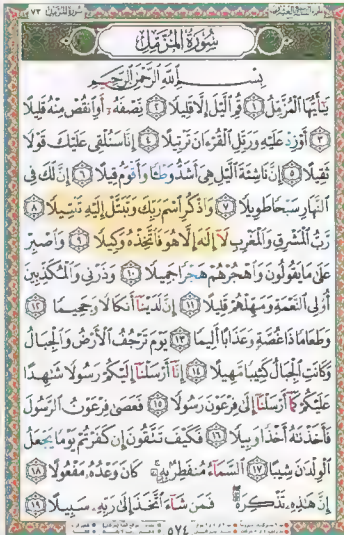 سُورَةُ المُزَّمِّلِ
بِسْمِ ٱللَّهِ ٱلرَّحْمَٰنِ ٱلرَّحِيمِ
يَٰٓأَيُّهَا ٱلْمُزَّمِّلُ ١ قُمِ ٱلَّيْلَ إِلَّا قَلِيلًا ٢ نِّصْفَهُۥٓ أَوِ ٱنقُصْ مِنْهُ قَلِيلًا
٣ أَوْ زِدْ عَلَيْهِ وَرَتِّلِ ٱلْقُرْءَانَ تَرْتِيلًا ٤ إِنَّا سَنُلْقِى عَلَيْكَ قَوْلًا
ثَقِيلًا ٥ إِنَّ نَاشِئَةَ ٱلَّيْلِ هِىَ أَشَدُّ وَطْـًٔا وَأَقْوَمُ قِيلًا ٦ إِنَّ لَكَ فِى
ٱلنَّهَارِ سَبْحًا طَوِيلًا ٧ وَٱذْكُرِ ٱسْمَ رَبِّكَ وَتَبَتَّلْ إِلَيْهِ تَبْتِيلًا ٨
رَّبُّ ٱلْمَشْرِقِ وَٱلْمَغْرِبِ لَآ إِلَٰهَ إِلَّا هُوَ فَٱتَّخِذْهُ وَكِيلًا ٩ وَٱصْبِرْ
عَلَىٰ مَا يَقُولُونَ وَٱهْجُرْهُمْ هَجْرًا جَمِيلًا ١٠ وَذَرْنِى وَٱلْمُكَذِّبِينَ
أُو۟لِى ٱلنَّعْمَةِ وَمَهِّلْهُمْ قَلِيلًا ١١ إِنَّ لَدَيْنَآ أَنكَالًا وَجَحِيمًا ١٢
وَطَعَامًا ذَا غُصَّةٍ وَعَذَابًا أَلِيمًا ١٣ يَوْمَ تَرْجُفُ ٱلْأَرْضُ وَٱلْجِبَالُ
وَكَانَتِ ٱلْجِبَالُ كَثِيبًا مَّهِيلًا ١٤ إِنَّآ أَرْسَلْنَآ إِلَيْكُمْ رَسُولًا شَٰهِدًا
عَلَيْكُمْ كَمَآ أَرْسَلْنَآ إِلَىٰ فِرْعَوْنَ رَسُولًا ١٥ فَعَصَىٰ فِرْعَوْنُ ٱلرَّسُولَ
فَأَخَذْنَٰهُ أَخْذًا وَبِيلًا ١٦ فَكَيْفَ تَتَّقُونَ إِن كَفَرْتُمْ يَوْمًا يَجْعَلُ
ٱلْوِلْدَٰنَ شِيبًا ١٧ ٱلسَّمَآءُ مُنفَطِرٌۢ بِهِۦ كَانَ وَعْدُهُۥ مَفْعُولًا ١٨
إِنَّ هَٰذِهِۦ تَذْكِرَةٌ فَمَن شَآءَ ٱتَّخَذَ إِلَىٰ رَبِّهِۦ سَبِيلًا ١٩
٥٧٤